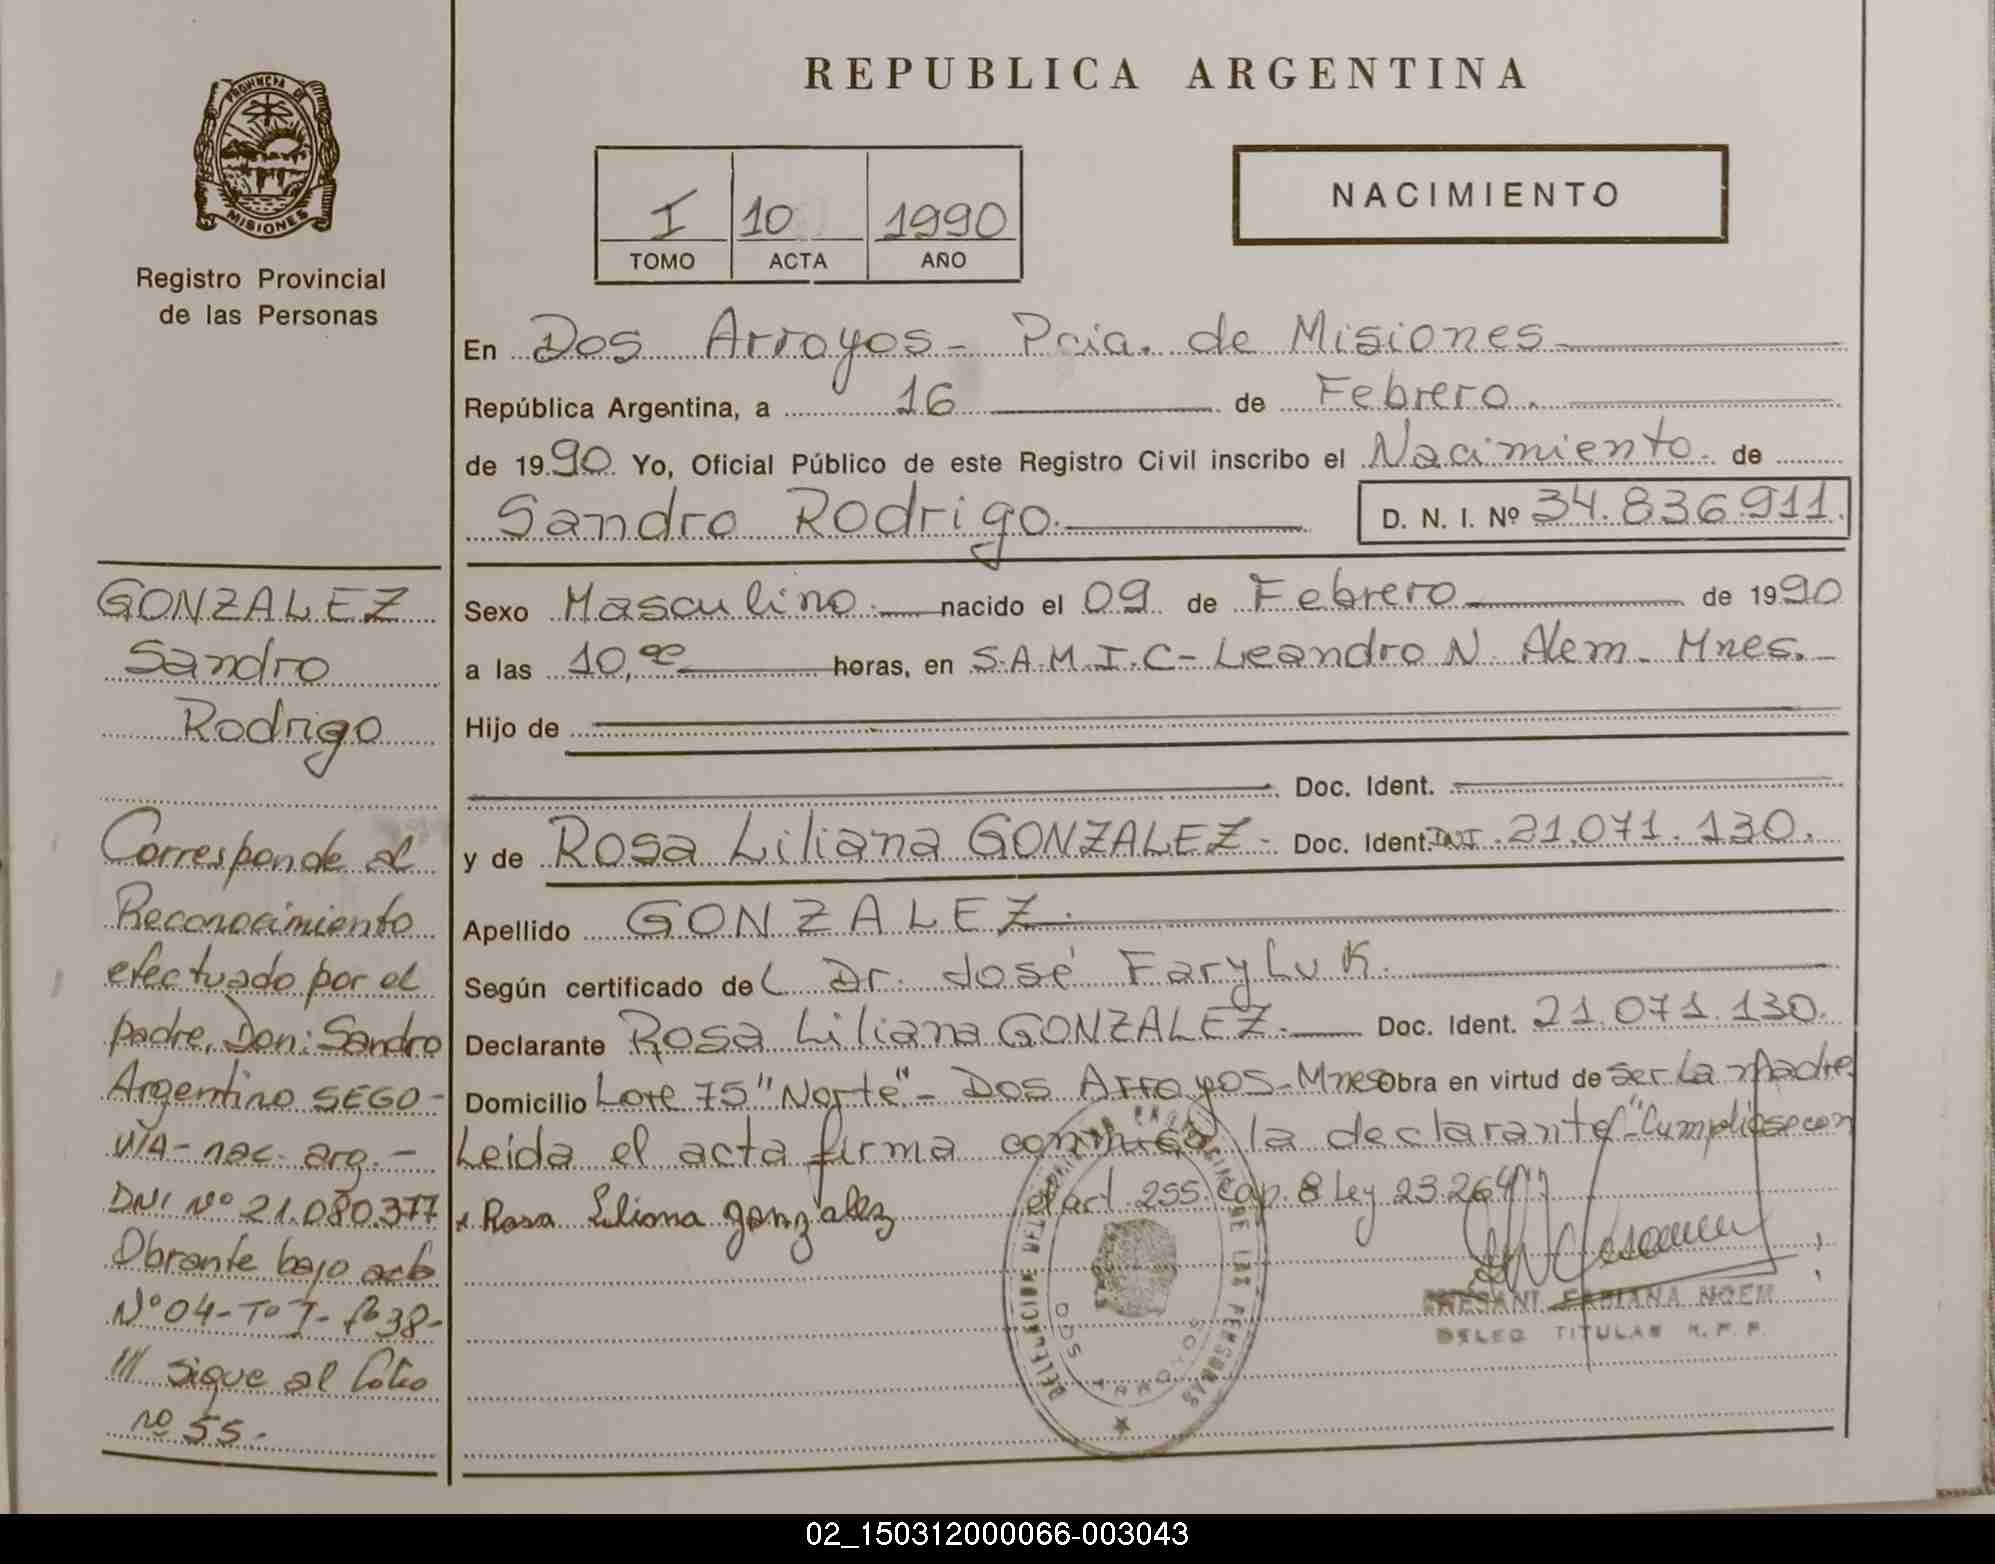 REPUBLICA ARGENTINA
PROVINCIA DE
MISIONES
Registro Provincial
de las Personas
I 10 1990
TOMO ACTA AÑO
NACIMIENTO
En Dos Arroyos - Pcia. de Misiones
República Argentina, a 16 de Febrero.
de 1990 Yo, Oficial Público de este Registro Civil inscribo el Nacimiento de
Sandro Rodrigo. D. N. I. Nº 34.836.911.
Sexo Masculino. nacido el 09 de Febrero de 1990
a las 10,oo horas, en S.A.M.I.C - Leandro N. Alem - Mnes. -
Hijo de
Doc. Ident.
y de Rosa Liliana GONZALEZ - Doc. Ident. DNI. 21.071.130.
Apellido GONZALEZ.
Según certificado del Dr. José Faryluk.
Declarante Rosa Liliana GONZALEZ. - Doc. Ident. 21.071.130.
Domicilio Lote 75 "Norte" - Dos Arroyos - Mnes Obra en virtud de ser la madre.
Leída el acta firma conmigo la declarante - "Cumpliose con
el art. 255. Cap. 8 Ley 23.264"
x Rosa Liliana gonzalez
FABIANA NOEMI
DELEG TITULAR R. P. P.
DOS ARROYOS
GONZALEZ
Sandro
Rodrigo
Corresponde al
Reconocimiento
efectuado por el
padre, Don: Sandro
Argentino SEGO-
VIA - nac. arg. -
DNI Nº 21.080.377
Obrante bajo acta
Nº 04 - Tº I - fº 38 -
/// Sigue al folio
nº 55 -
02_150312000066-003043